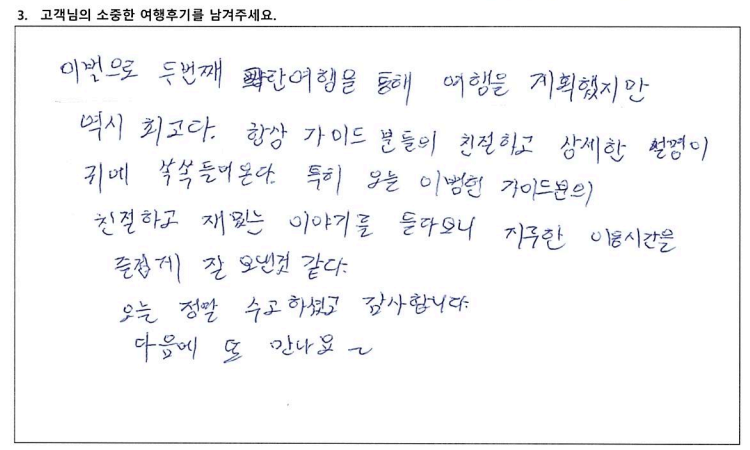 3. 고객님의 소중한 여행후기를 남겨주세요.
이벌으로 두번째 탄여행을 통해 여행을 계획했지만
역시 최고다. 항상 가이드 분들의 친절하고 상세한 설명이
귀에 쏙쏙들어온다. 특히 오늘 이범현 가이드분의
친절하고 재밌는 이야기를 듣다보니 지루한 이동시간을
즐겁게 잘 보낸것 같다.
오늘 정말 수고하셨고 감사합니다.
다음에 또 만나요~